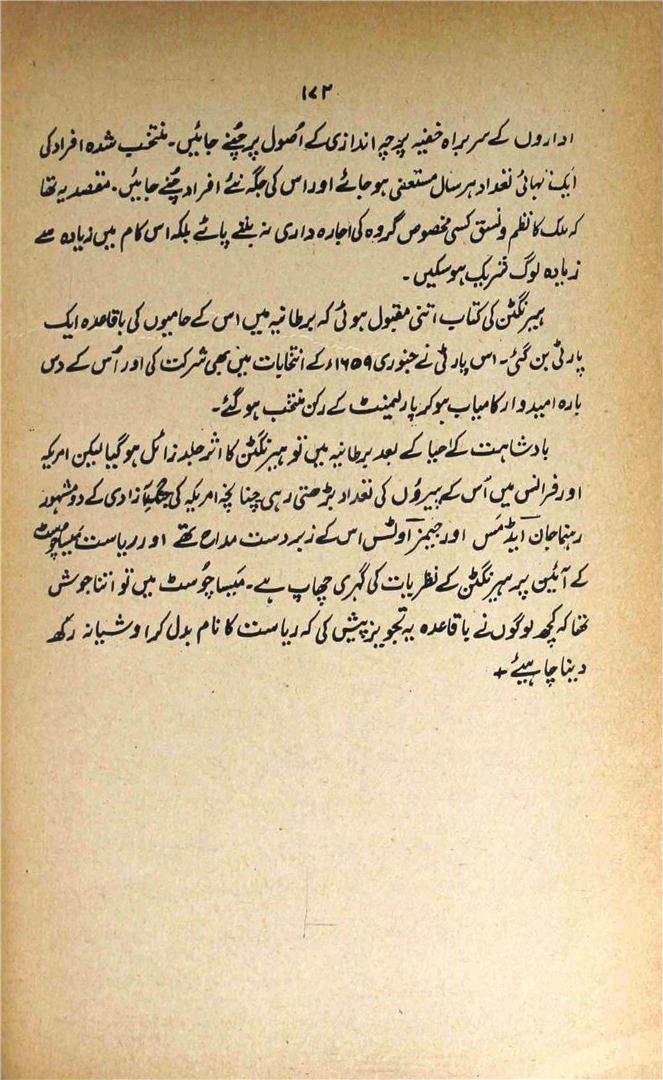 ۱۷۲
اداروں کے سربراہ خفیہ پرچہ اندازی کے اُصول پر چُنے جائیں۔ منتخب شدہ افراد کی
ایک تہائی تعداد ہر سال مستعفی ہو جائے اور اس کی جگہ نئے افراد چُنے جائیں۔ مقصد یہ تھا
کہ ملک کا نظم و نسق کسی مخصوص گروہ کی اجارہ داری نہ بننے پائے بلکہ اس کام میں زیادہ سے
زیادہ لوگ شریک ہو سکیں۔
ہیرنگٹن کی کتاب اتنی مقبول ہوئی کہ برطانیہ میں اس کے حامیوں کی باقاعدہ ایک
پارٹی بن گئی۔ اس پارٹی نے جنوری ۱۶۵۹ء کے انتخابات میں بھی شرکت کی اور اُس کے دس
بارہ امیدوار کامیاب ہو کر پارلیمنٹ کے رکن منتخب ہو گئے۔
بادشاہت کے احیا کے بعد برطانیہ میں تو ہیرنگٹن کا اثر جلد زائل ہو گیا لیکن امریکہ
اور فرانس میں اُس کے پیروُں کی تعداد بڑھتی رہی چنانچہ امریکہ کی جنگِ آزادی کے دو مشہور
رہنما جان ایڈمس اور جیمز آوٹس اس کے زبردست مداح تھے اور ریاست میساچوسٹ
کے آئین پر ہیرنگٹن کے نظریات کی گہری چھاپ ہے۔ میساچوسٹ میں تو اتنا جوش
تھا کہ کچھ لوگوں نے باقاعدہ یہ تجویز پیش کی کہ ریاست کا نام بدل کر اوشیانہ رکھ
دینا چاہیئے +